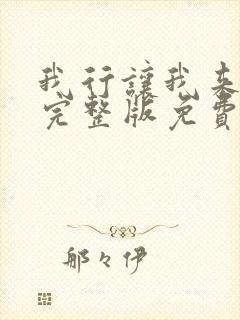 我行讓我来
完整版免費
那々伊